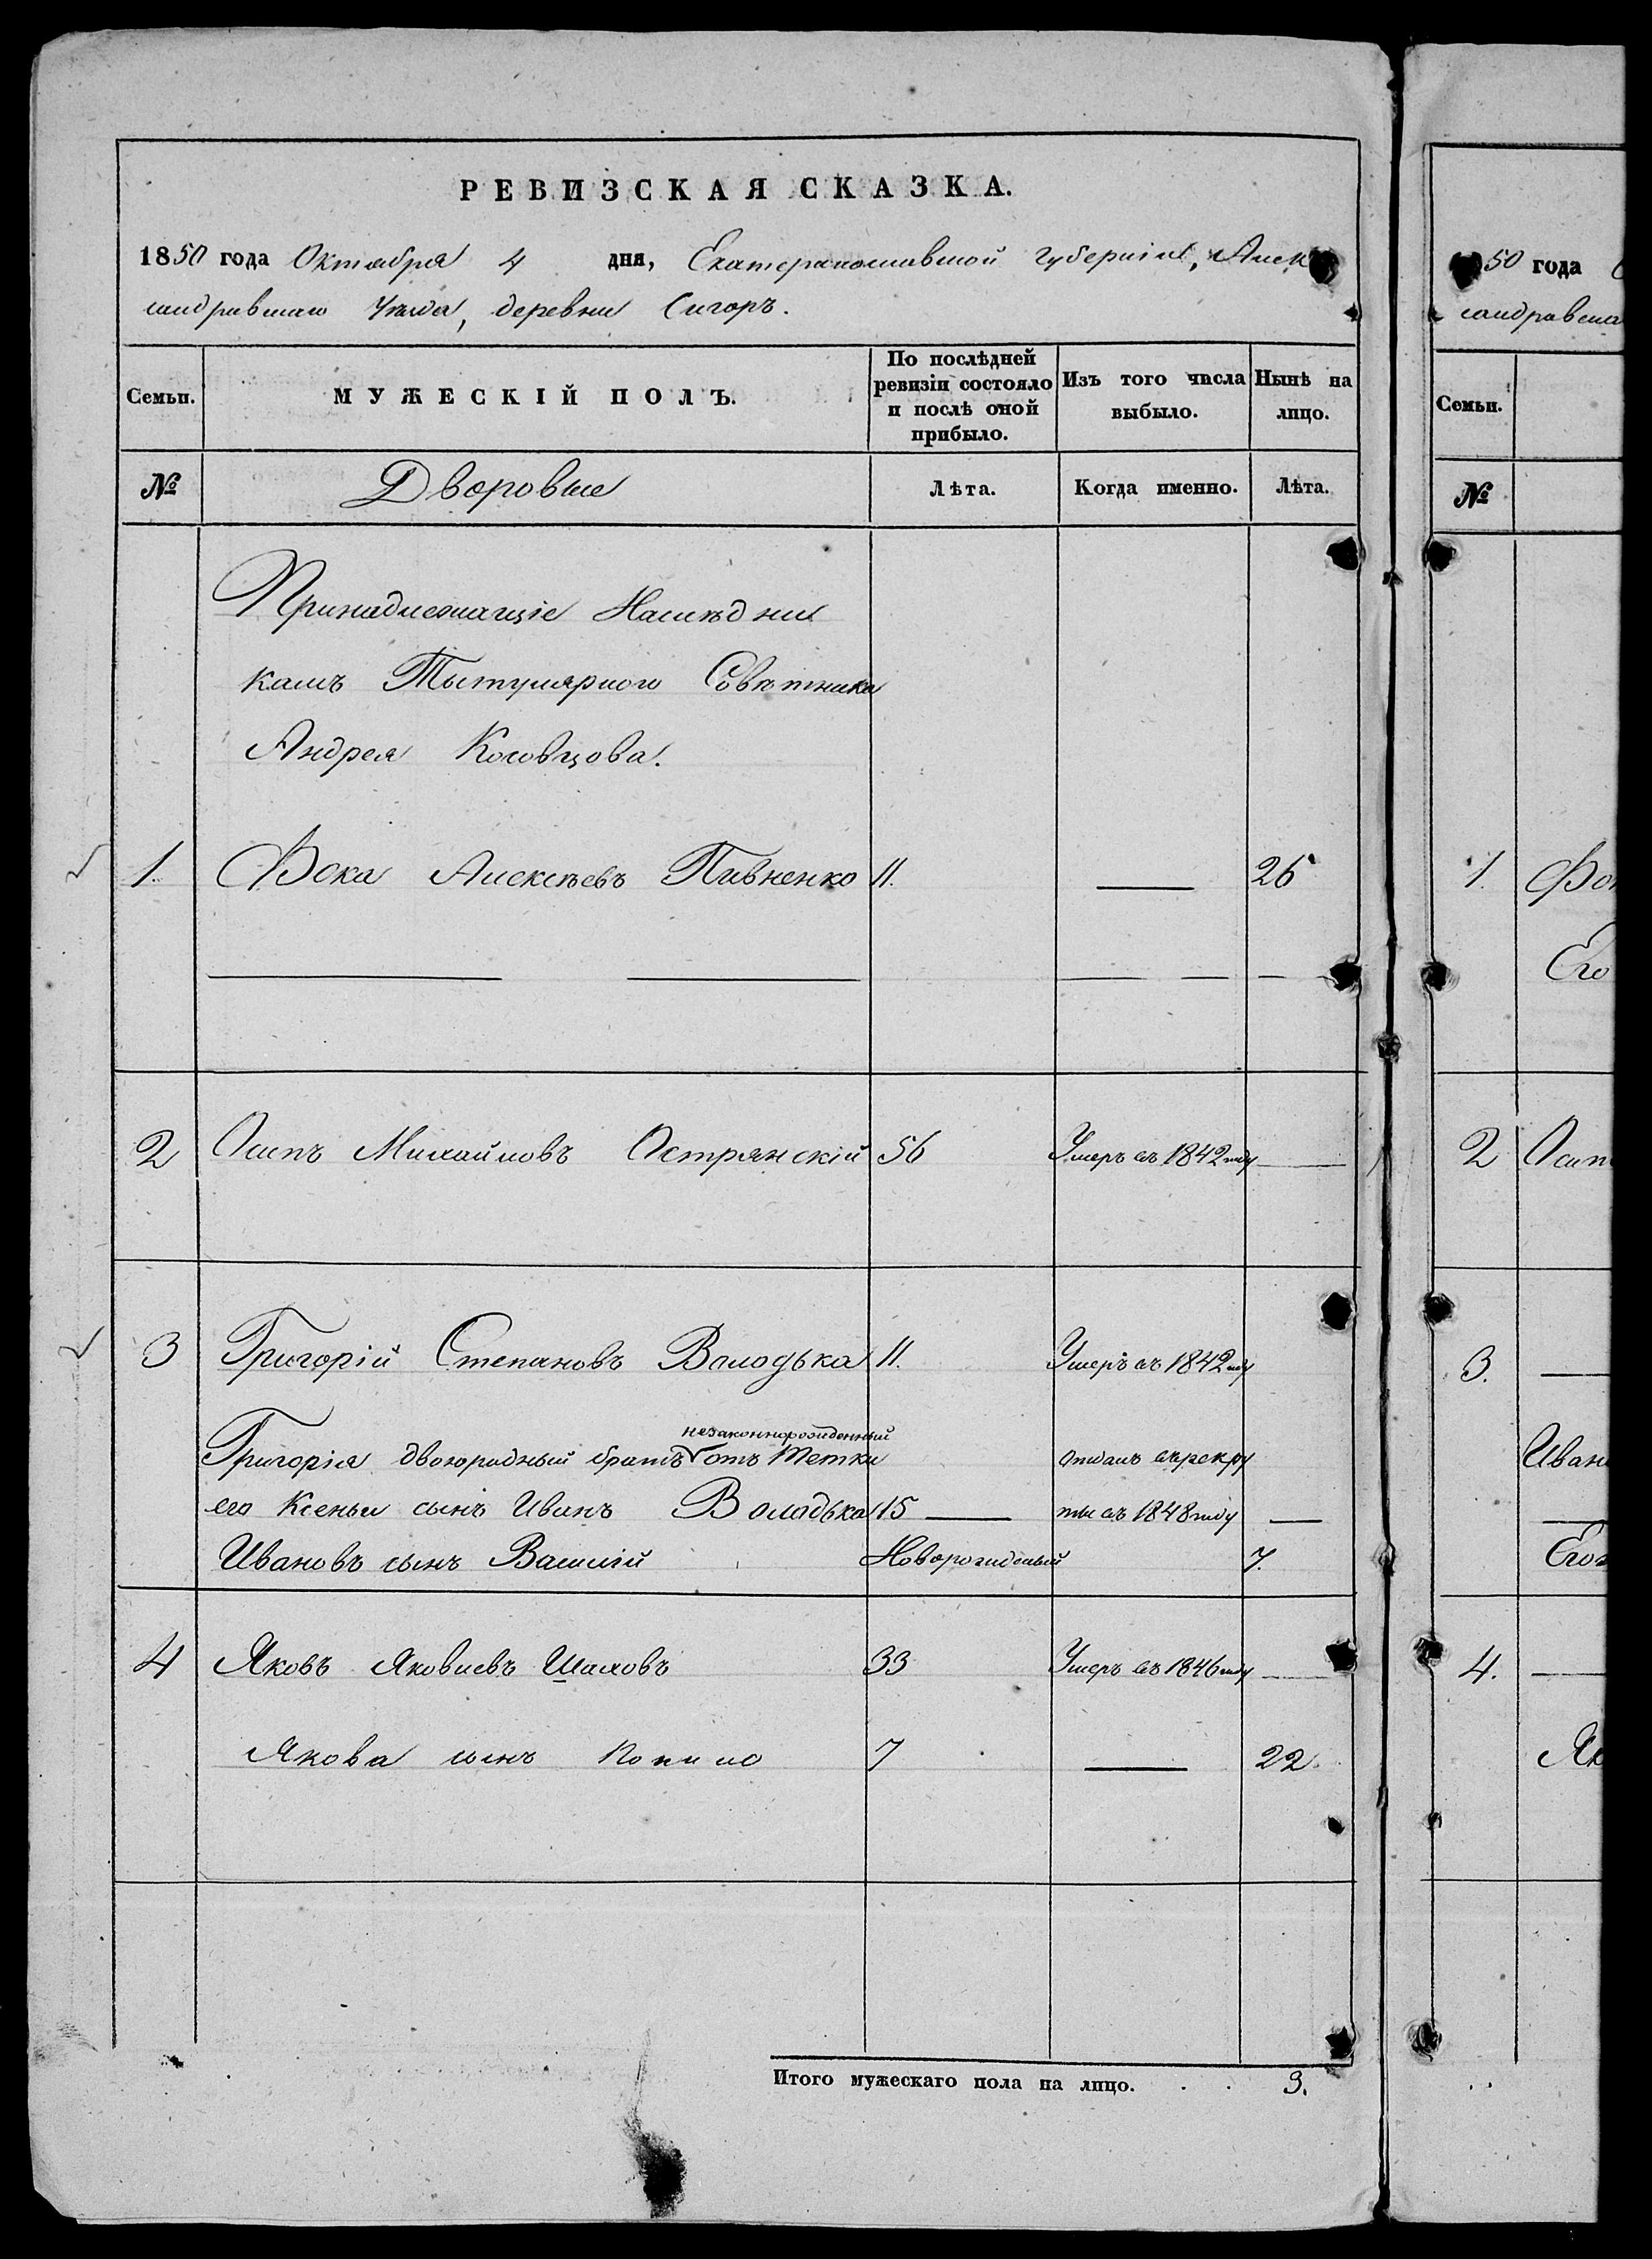 РЕВИЗСКАЯ СКАЗКА.
1850 года Октября 4 дня, Екатеринославской Губерніи, Алек
сандровскаго Уѣзда, деревни Сигоръ.
Семьи.
МУЖЕСКІЙ ПОЛЪ.
По послѣдней ревизіи состояло и послѣ оной прибыло.
Изъ того числа выбыло.
Нынѣ на лицо.
№ Дворовые Лѣта. Когда именно. Лѣта.
Принадлежащіе Наслѣдни
камъ Тытулярного Совѣтника
Андрея Косовцова.
1. Фока Алексѣевъ Пивненко 11. — 26
2 Осипъ Михайловъ Острянскій 56 Умеръ въ 1842 году —
3 Григорій Степановъ Володька 11. Умеръ въ 1842 году
незаконнорожденный
Григорія двоюродный братъ отъ тетки отданъ въ рекру
его Ксеньи сынъ Иванъ Володька 15 — ты въ 1848 году —
Ивановъ сынъ Василій Новорожденый 7.
4 Яковъ Яковлевъ Шаховъ 33 Умеръ въ 1846 году —
Якова сынъ 7 — 22.
Итого мужескаго пола на лицо. . . 3.
50 года
сандровска
Семьи.
№
1. Фок
Его
2 Осип
3. —
Иван
Его
4. —
Як